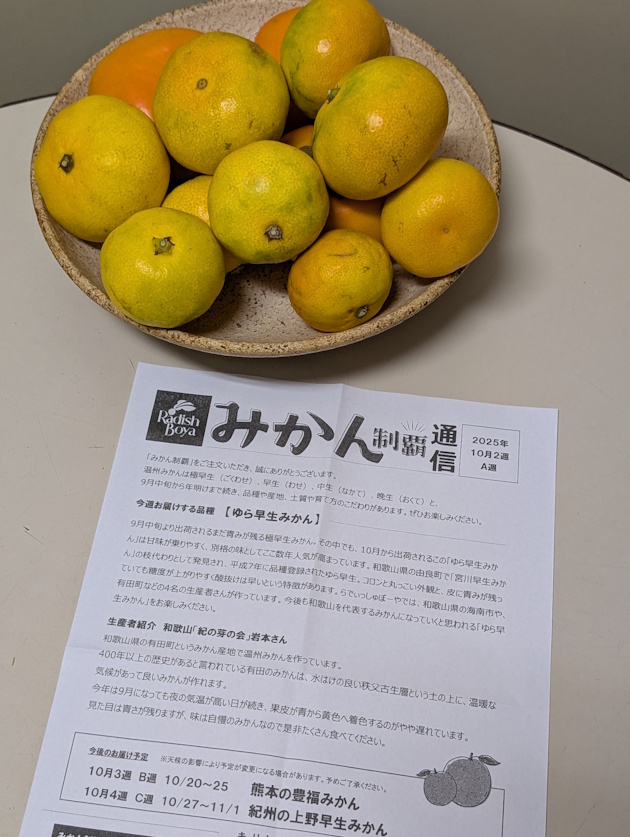 Radish Boya
みかん制覇通信
2025年
10月2週
A週
「みかん制覇」をご注文いただき、誠にありがとうございます。
温州みかんは極早生（ごくわせ）、早生（わせ）、中生（なかて）、晩生（おくて）と、
9月中旬から年明けまで続き、品種や産地、土質や育て方のこだわりがあります。ぜひお楽しみください。
今週お届けする品種 【ゆら早生みかん】
9月中旬より出荷されるまだ青みが残る極早生みかん。その中でも、10月から出荷されるこの「ゆら早生みか
ん」は甘味が乗りやすく、別格の味としてここ数年人気が高まっています。和歌山県の由良町で「宮川早生みか
ん」の枝代わりとして発見され、平成7年に品種登録されたゆら早生。コロンと丸っこい外観と、皮に青みが残っ
ていても糖度が上がりやすく酸抜けは早いという特徴があります。らでぃっしゅぼーやでは、和歌山県の海南市や、
有田町などの4名の生産者さんが作っています。今後も和歌山を代表するみかんになっていくと思われる「ゆら早
生みかん」をお楽しみください。
生産者紹介 和歌山「紀の芽の会」岩本さん
和歌山県の有田町というみかん産地で温州みかんを作っています。
400年以上の歴史があると言われている有田のみかんは、水はけの良い秩父古生層という土の上に、温暖な
気候があって良いみかんが作れます。
今年は9月になっても夜の気温が高い日が続き、果皮が青から黄色へ着色するのがやや遅れています。
見た目は青さが残りますが、味は自慢のみかんなので是非たくさん食べてください。
今後のお届け予定 ※天候の影響により予定が変更になる場合があります。予めご了承ください。
10月3週 B週 10/20~25 熊本の豊福みかん
10月4週 C週 10/27~11/1 紀州の上野早生みかん